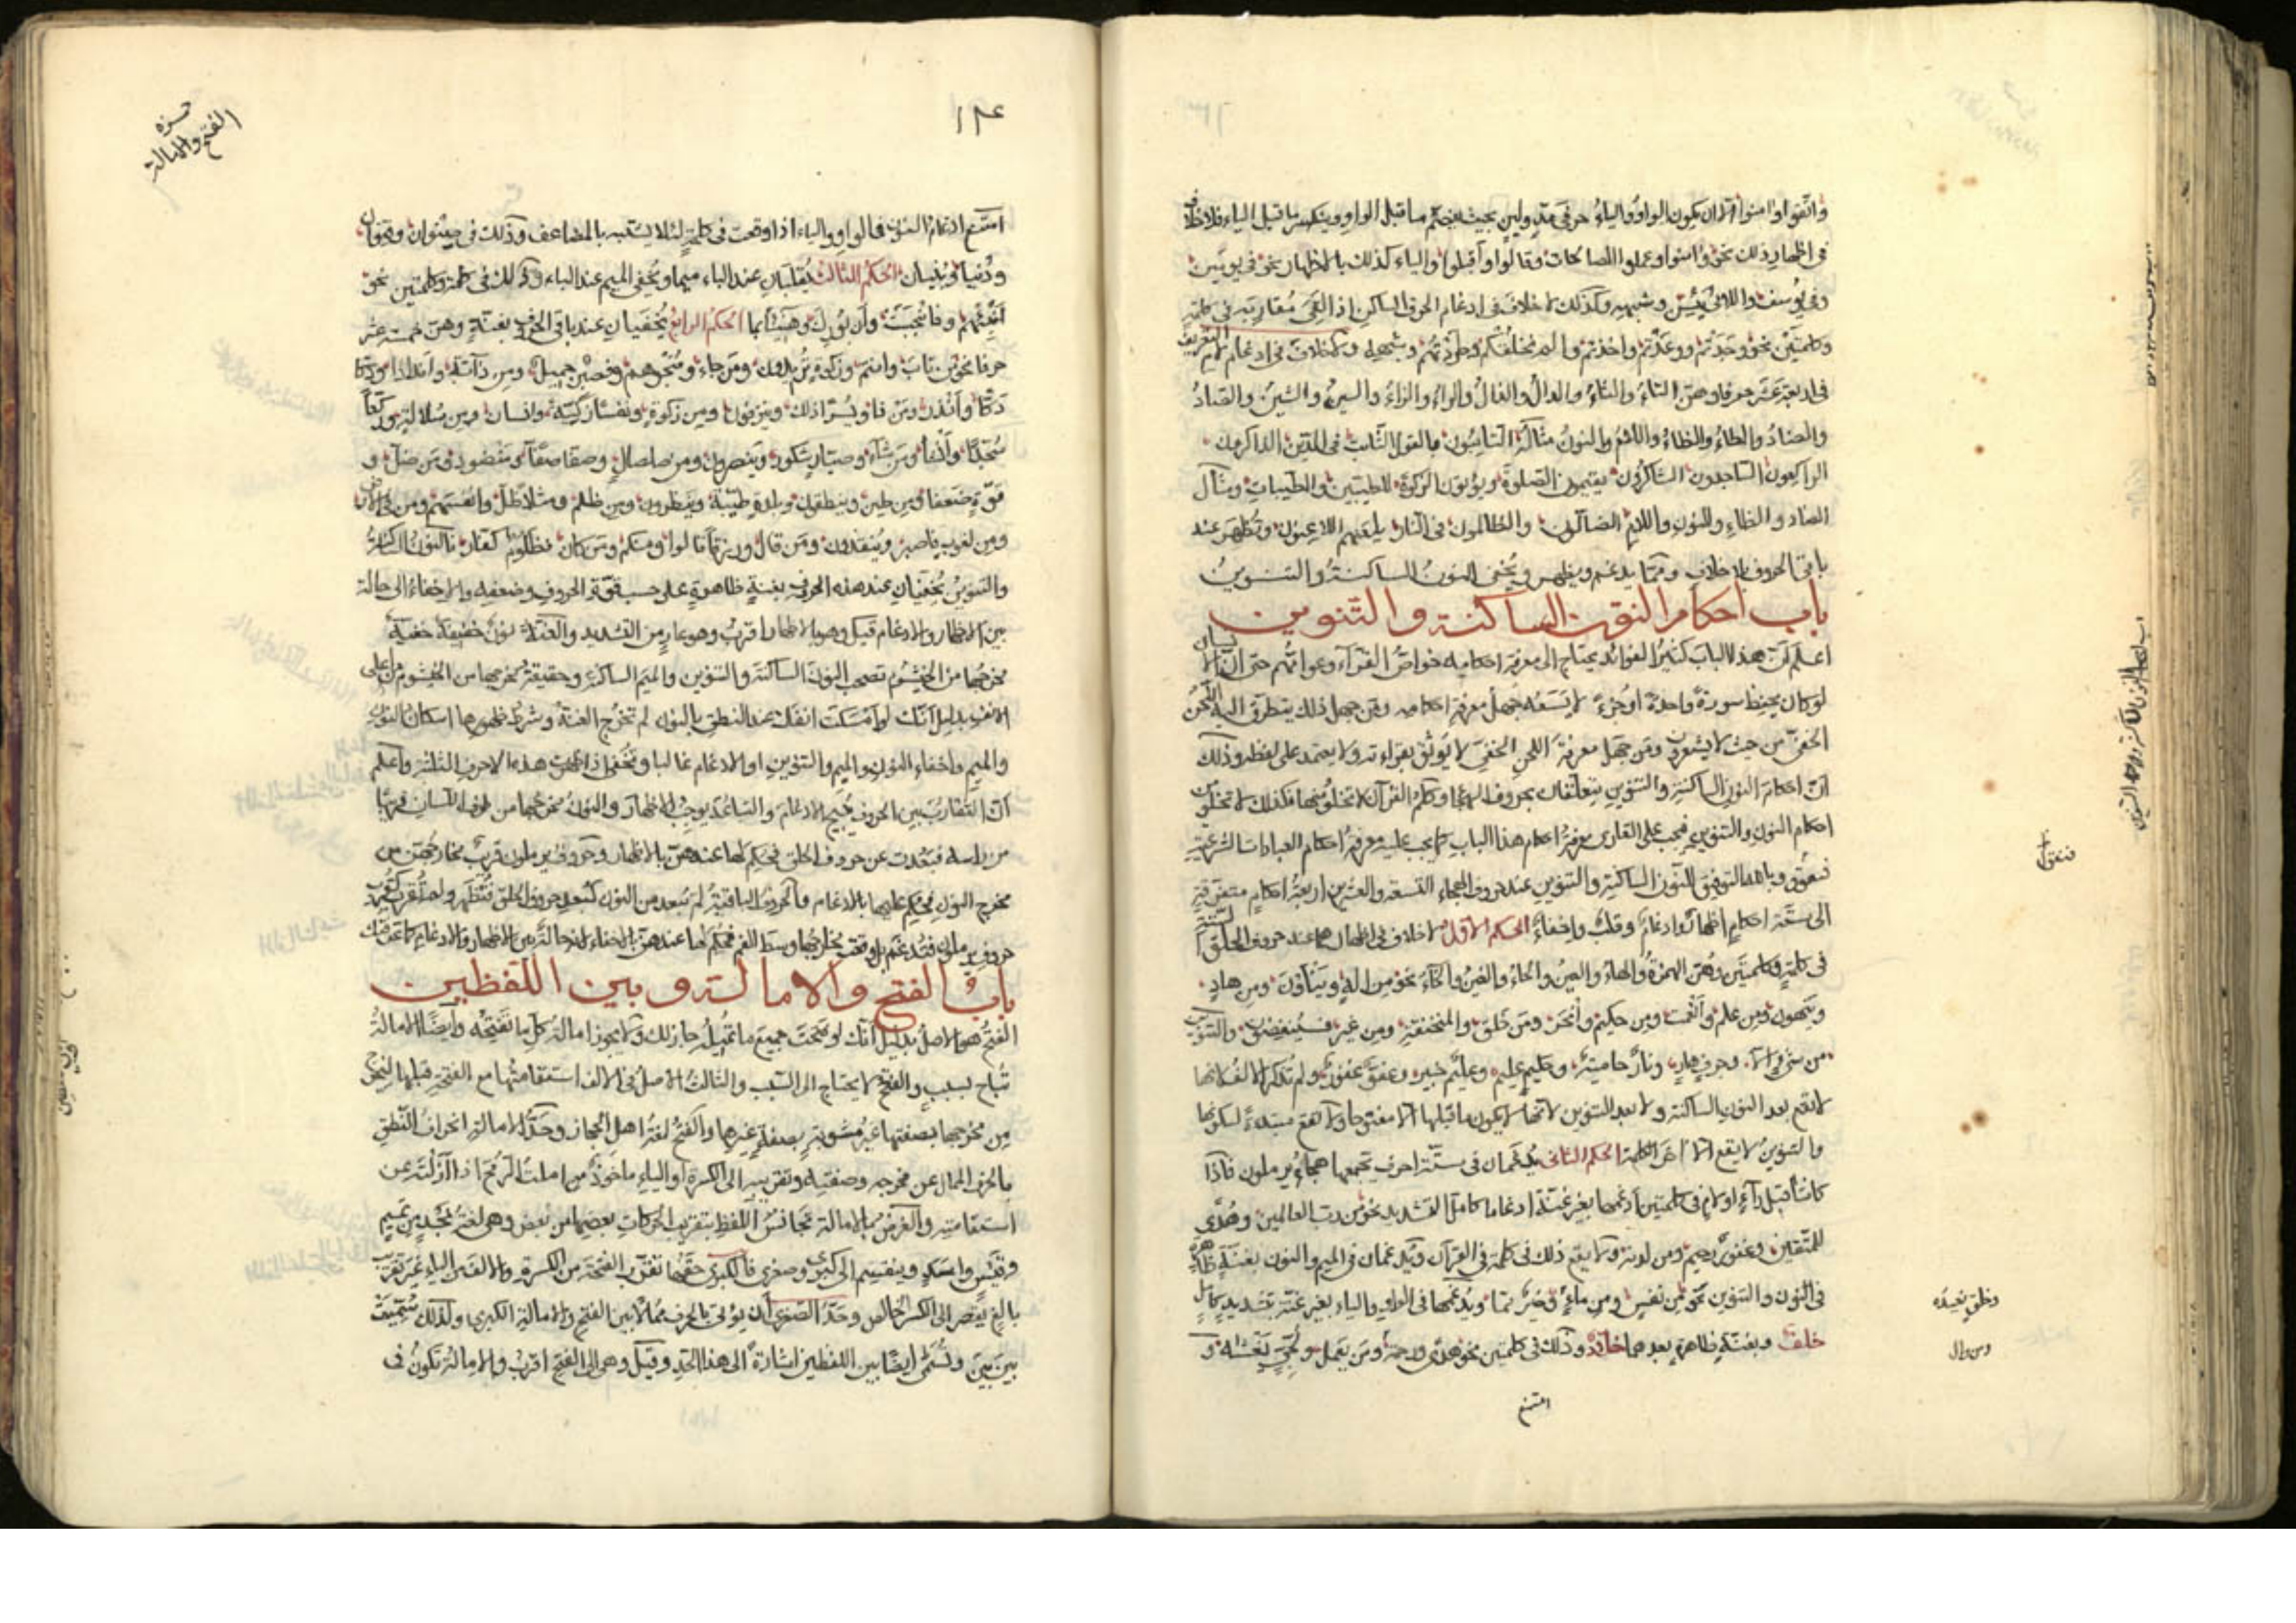 واتقوا وامنوا الا ان يكون الواو والياء حرفى مد ولين بحيث ينضم ما قبل الواو وينكسر ما قبل الياء فلا خلاف
فى اظهار ذلك نحو وامنوا وعملوا الصالحات وقالوا واقبلوا والياء كذلك بالاظهار نحو فى يومين
وفى يوسف واللائى يئسن وشبهه وكذلك لا خلاف فى ادغام الحرف الساكن اذا لقى مقاربه فى كلمة
وكلمتين نحو وجدتم ووعدتم واخذتم والم نخلقكم وشبهه ولا خلاف فى ادغام لام التعريف
فى اربعة عشر حرفا وهن التاء والثاء والدال والذال والراء والزاء والسين والشين والصاد
والضاد والطاء والظاء واللام والنون مثاله التائبون بالقول الثابت فى الدين الذاكرين
الراكعون الساجدون الشاكرون يقيمون الصلوة ويؤتون الزكوة للطيبين والطيبات ومثال
الضاد والظاء والنون واللام الضالون والظالمون فى النار يلعنهم اللاعنون وتظهر عند
باقى الحروف بلا خلاف ومما يدغم ويظهر ويخفى النون الساكنة والتنوين
باب احكام النون الساكنة والتنوين
اعلم ان هذا الباب كثير الفوائد يحتاج الى معرفة احكامه خواص القراء وعوامهم حتى ان
لو كان يحفظ سورة واحدة او جزء لا يسعه جهل معرفة احكامه ومن جهل ذلك يتطرق اليه اللحن
الخفى من حيث لا يشعر ومن جهل معرفة اللحن الخفى لا يوثق بقراءته ولا يعتمد على لفظه وذلك
ان احكام النون الساكنة والتنوين يتعلقان بحروف الهجا وكلم القران لا تخلو منها فكذلك لا تخلو من
احكام النون والتنوين فيجب على القارى معرفة احكام هذا الباب كما يجب عليه معرفة احكام العبادات الشرعية
فنقول وبالله التوفيق للنون الساكنة والتنوين عند حروف الهجاء التسعة والعشرين اربعة احكام متفرقة
الى ستة احكام اظهار وادغام وقلب واخفاء الحكم الاول لا خلاف فى اظهارهما عند حروف الحلق الستة
فى كلمة وكلمتين وهن الهمزة والهاء والعين والحاء والغين والخاء نحو من اله وينأون ومن هاد
وينهون ومن علم وانعمت ومن حكيم وانحر ومن خلق والمنخنقة ومن غير فسينغضون والتنوين
من شئ الا وجرف هار ونار حامية وحكيم عليم وعليم خبير وعفو غفور ولم تذكر الالف لانها
لا تقع بعد النون الساكنة ولا بعد التنوين لانها لا يكون ما قبلها الا مفتوحا ولا تقع مبتدءة لسكونها
والتنوين لا يقع الا اخر الكلمة الحكم الثانى يدغمان فى ستة احرف تجمعها هجاء يرملون فاذا
كانتا قبل راء او لام فى كلمتين ادغمها بغير غنة ادغاما كامل التشديد نحو من رب العالمين وهدى
للمتقين وغفور رحيم ومن لدنه ولا يقع ذلك فى كلمة فى القرآن ويدغمان فى الميم والنون بغنة ظاهرة
فى النون والتنوين نحو من نفس ومن ماء ويدغمها فى الواو والياء بغير غنة بتشديد كامل
خلف وبغنة ظاهرة بعدهما خلاد وذلك فى كلمتين نحو هدى ورحمة ومن يعمل
امتنع
فنقول
١٣٤
الفتح والامالة
امتنع ادغام النون فى الواو والياء اذا وقعت فى كلمة لئلا يشتبه بالمضاعف وذلك فى صنوان وقنوان
ودنيا وبنيان الحكم الثالث يقلبان عند الباء ميما ويخفى الميم عند الباء وذلك فى كلمة وكلمتين نحو
انبئهم وفانبجست وان بورك وهنيئا بما الحكم الرابع يخفيان عند باقى الحروف بغنة وهن خمسة عشر
حرفا نحو من تاب وانتم وزكوة تريدون ومن جاء وفصبر جميل ومن دابة واندادا ودكا
دكا وانذر ومن ذا ويسرا ذلك وينزفون ومن زكوة ونفسا زكية وانسان ومن سلالة وركعا
سجدا وانشا ومن شاء وصبار شكور وينصرون ومن صلصال وصفا صفا ومنضود ومن ضل و
قوة ضعفا ومن طين وينطقون وبلدة طيبة وينظرون ومن ظلم ومثلا ظل وانفسهم ومن فى الارض
ومن لغوب فاصبر وينقذون ومن قال ورزقا قالوا ومنكم ومن كان لظلوم كفار فالنون الساكنة
والتنوين يخفيان عند هذه الحروف بغنة ظاهرة على حسب قوة الحروف وضعفه والاخفاء الى حالة
بين الاظهار والادغام قيل وهو بالاظهار اقرب وهو عار من التشديد والغنة نون خفيفة خفية
مخرجها من الخيشوم تصحب النون الساكنة والتنوين والميم الساكنة وحقيقة مخرجها من الخيشوم من اعلى
الانف بدليل انك لو امسكت انفك عند النطق بالنون لم تخرج الغنة وشرط ظهورها اسكان النون
والميم واخفاء النون والميم والتنوين او الادغام غالبا وتخفى اذا هذه الاحرف الثلثة واعلم
ان التقارب بين الحروف يبيح الادغام والتباعد يوجب الاظهار والنون مخرجها من طرف اللسان قريبا
من راسه فبعدت عن حروف الحلق فحكم لها عندهن بالاظهار وحروف يرملون قريب مخارجهن من
مخرج النون فحكم عليها بالادغام والحروف الباقية لم تبعد من النون كبعد حروف الحلق فتظهر ولم تقرب كقرب
حروف يرملون فتدغم بل وقعت مخارجها وسط الفم فحكم لها عندهن بالاخفاء لانه حالة بين الاظهار والادغام كما عرفتك
باب الفتح والامالة وبين اللفظين
الفتح هو الاصل بدليل انك لو فتحت جميع ما تميله جاز لك ولا يجوز امالة كل ما تفتحه وايضا الامالة
تباح لسبب والفتح لا يحتاج الى السبب والثالث الاصل فى الالف استقامتها مع الفتحة قبلها لتخرج
من مخرجها بصفتها غير مشوبة بصفة غيرها والفتح لغة اهل الحجاز وحد الامالة انحراف النطق
بالحرف الممال عن مخرجه وصفته وتقريبه الى الكسرة او الياء ماخوذ من املت الرمح اذا ازلته عن
استقامته والغرض بالامالة تجانس اللفظ بتقريب الحركات بعضها من بعض وهى لغة نجد من تميم
وقيس واسد وينقسم الى كبرى وصغرى فالكبرى حقها تقرب الفتحة من الكسرة والالف من الياء غير تقريب
بالغ يفضى الى الكسر الخالص وحد الصغرى ان يؤتى بالحرف ممالا بين الفتح والامالة الكبرى ولذلك سميت
بين بين وتسمى ايضا بين اللفظين اشارة الى هذا الحد وقيل وهى الى الفتح اقرب والامالة تكون فى